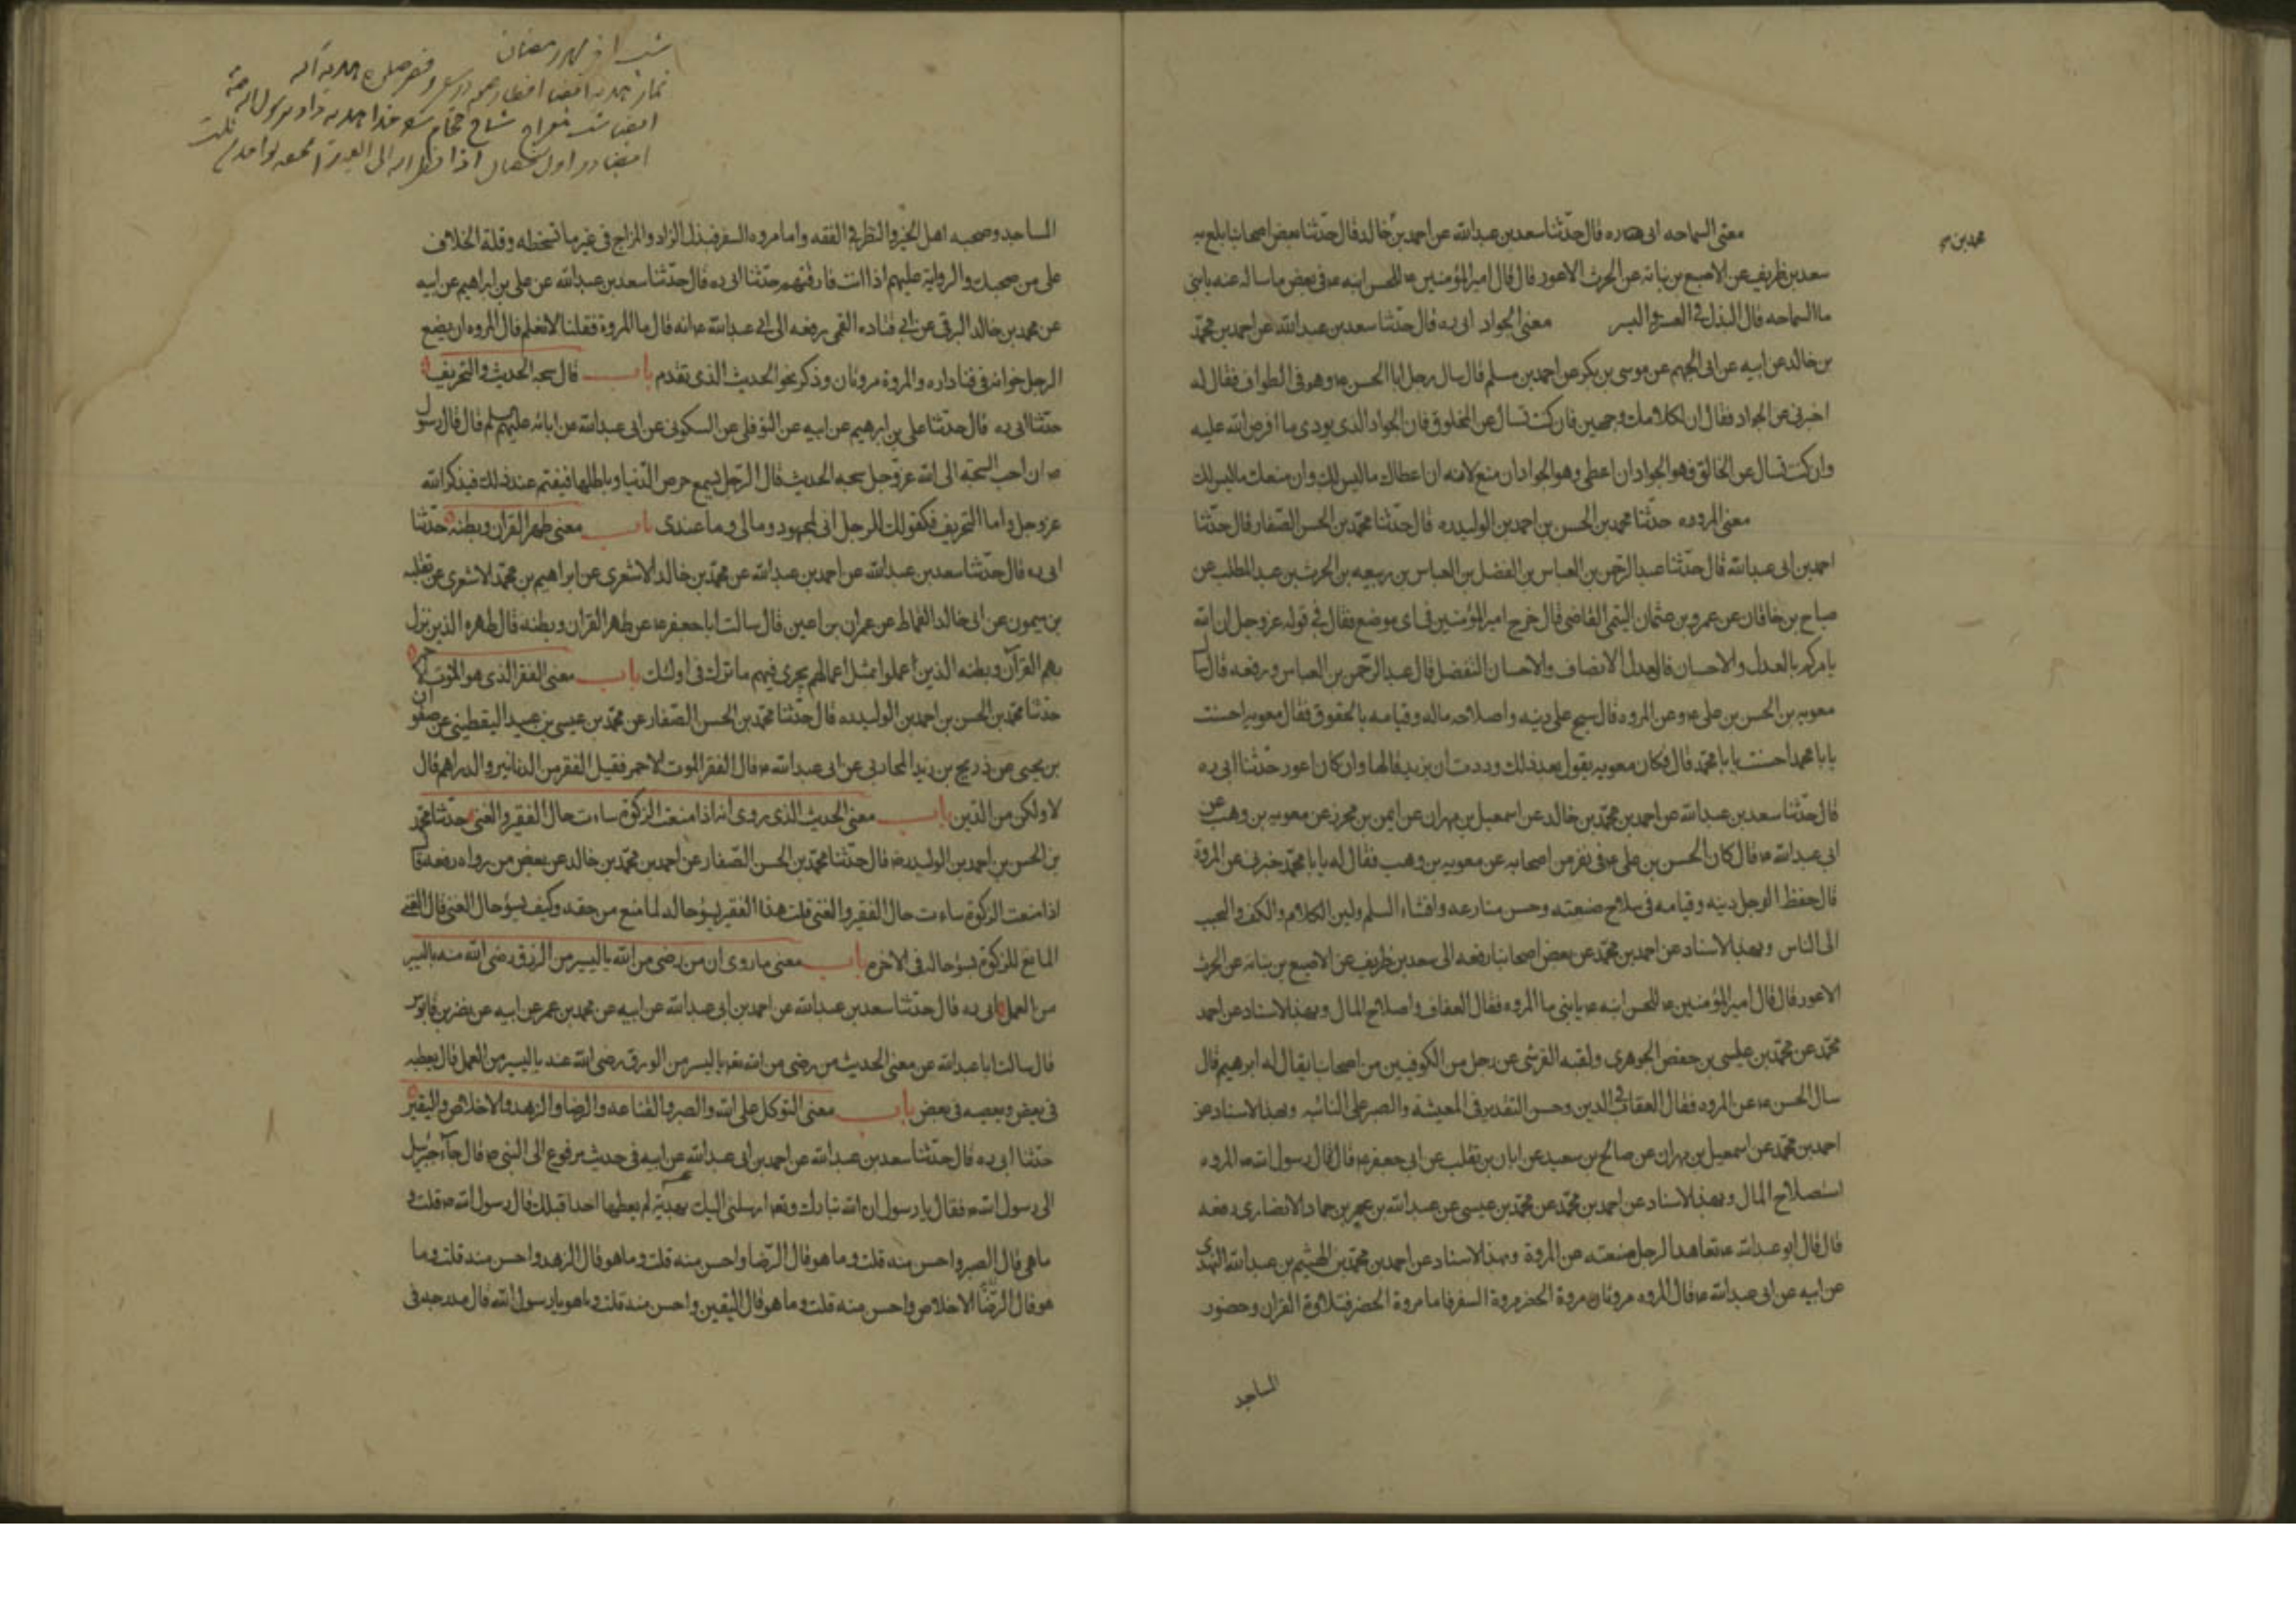 معنى السماحه ابى ره قال حدثنا سعد بن عبدالله عن احمد بن خالد قال حدثنا بعض اصحابنا بلغ به
محمد بن
سعد بن ظريف عن الاصبغ بن نباته عن الحرث الاعور قال قال امير المؤمنين ع للحسن ابنه ع فى بعض ما ساله عنه يا بنى
ما السماحه قال البذل فى العسر و اليسر معنى الجواد ابى ره قال حدثنا سعد بن عبدالله عن احمد بن محمد
بن خالد عن ابيه عن ابى الجهم عن موسى بن بكر عن احمد بن مسلم قال سال رجل ابا الحسن ع وهو فى الطواف فقال له
اخبرنى عن الجواد فقال ان لكلامك وجهين فان كنت تسال عن المخلوق فان الجواد الذى يودى ما افرض الله عليه
وان كنت تسال عن الخالق فهو الجواد ان اعطى وهو الجواد ان منع لانه ان اعطاك ما ليس لك وان منعك ما ليس لك
معنى المروه حدثنا محمد بن الحسن بن احمد بن الوليد ره قال حدثنا محمد بن الحسن الصفار قال حدثنا
احمد بن ابى عبدالله قال حدثنا عبد الرحمن بن العباس بن الفضل بن العباس بن ربيعه بن الحرث بن عبد المطلب عن
صباح بن خاقان عن عمرو بن عثمان التيمى القاضى قال خرج امير المؤمنين فى اى موضع فقال فى قوله عز وجل ان الله
يامركم بالعدل والاحسان فالعدل الانصاف والاحسان التفضل قال عبد الرحمن بن العباس ورفعه قال سال
معويه بن الحسن بن على ع وعن المروه قال شح على دينه واصلاحه ماله وقيامه بالحقوق فقال معويه احسنت
يا با محمد احسنت يا با محمد قال فكان معويه يقول بعد ذلك وددت ان يزيد قالها وان كان اعور حدثنا ابى ره
قال حدثنا سعد بن عبدالله عن احمد بن محمد بن خالد عن اسمعيل بن مهران عن ايمن بن محرز عن معويه بن وهب عن
ابى عبدالله ع قال كان الحسن بن على ع فى نفر من اصحابه عن معويه بن وهب فقال له يا با محمد خبرنى عن المروة
قال حفظ الرجل دينه وقيامه فى صلاح ضيعته وحسن منازعه وافشاء السلم ولين الكلام والكف والتحبب
الى الناس وبهذا الاسناد عن احمد بن محمد عن بعض اصحابنا رفعه الى سعد بن ظريف عن الاصبغ بن نباته عن الحرث
الاعور قال قال امير المؤمنين ع للحسن ابنه ع يا بنى ما المروه فقال العفاف واصلاح المال وبهذا الاسناد عن احمد
محمد عن محمد بن عيسى بن حفص الجوهرى ولقبه القرشى عن رجل من الكوفيين من اصحابنا يقال له ابرهيم قال
سال الحسن ع عن المروه فقال العفاف فى الدين وحسن التقدير فى المعيشة والصبر على النائبه وبهذا الاسناد عن
احمد بن محمد عن اسمعيل بن مهران عن صالح بن سعيد عن ابان بن تغلب عن ابى جعفر ع قال قال رسول الله ص المروه
استصلاح المال وبهذا الاسناد عن احمد بن محمد عن محمد بن عيسى عن عبدالله بن عمر بن حماد الانصارى رفعه
قال قال ابو عبدالله ع تعاهد الرجل ضيعته من المروة وبهذا الاسناد عن احمد بن محمد بن الهيثم بن عبدالله النهدى
عن ابيه عن ابى عبدالله ع قال المروه مروتان مروة الحضر ومروة السفر فاما مروة الحضر فتلاوة القران وحضور
المساجد
شب اخر رمضان
المساجد وصحبه اهل الخير والنظر فى الفقه واما مروه السفر فبذل الزاد والمزاح فى غير ما تسخطه وقلة الخلاف
على من صحبك والرواية عليهم اذا انت فارقتهم حدثنا ابى ره قال حدثنا سعد بن عبدالله عن على بن ابراهيم عن ابيه
عن محمد بن خالد البرقى عن ابى قتاده القمى رفعه الى ابى عبدالله ع انه قال ما المروة فقلنا لا نعلم قال المروه ان يضع
الرجل خوانه فى فناداره والمروة مروتان وذكر نحو الحديث الذى تقدم باب قال سبحة الحديث والتحريف
حدثنا ابى ره قال حدثنا على بن ابرهيم عن ابيه عن النوفلى عن السكونى عن ابى عبدالله عن ابائه عليهم السلم قال قال رسول
ص ان احب السبحة الى الله عز وجل سبحه الحديث قال الرجل يسمع حرص الدنيا وباطلها فيغتم عند ذلك فيذكر الله
عز وجل واما التحريف فكقولك للرجل انى لمجهود ومالى وما عندى باب معنى ظهر القران وبطنه حدثنا
ابى ره قال حدثنا سعد بن عبدالله عن احمد بن عبدالله عن محمد بن خالد الاشعرى عن ابراهيم بن محمد الاشعرى عن ثعلبه
بن ميمون عن ابى خالد القماط عن عمران بن اعين قال سالت ابا جعفر ع عن ظهر القران وبطنه قال ظهره الذين نزل
بهم القرآن وبطنه الذين اعملوا بمثل اعمالهم يجرى فيهم ما نزل فى اولئك باب معنى الفقر الذى هو الموت الاحمر
حدثنا محمد بن الحسن بن احمد بن الوليد ره قال حدثنا محمد بن الحسن الصفار عن محمد بن عيسى بن عبيد اليقطينى عن صفوان
بن يحيى عن ذريح بن يزيد المحاربى عن ابى عبدالله ع قال الفقر الموت الاحمر فقيل الفقر من الدنانير والدراهم قال
لا ولكن من الدين باب معنى الحديث الذى روى انه اذا منعت الزكوة ساءت حال الفقير والغنى حدثنا محمد
بن الحسن بن احمد بن الوليد ره قال حدثنا محمد بن الحسن الصفار عن احمد بن محمد بن خالد عن بعض من رواه رفعه قال
اذا منعت الزكوة ساءت حال الفقير والغنى قلت هذا الفقير يسوء حاله لما منع من حقه وكيف يسوء حال الغنى قال الغنى
المانع للزكوة يسوء حاله فى الاخرة باب معنى ما روى ان من رضى من الله باليسير من الرزق رضى الله منه باليسير
من العمل ابى ره قال حدثنا سعد بن عبدالله عن احمد بن ابى عبدالله عن ابيه عن محمد بن عمر عن ابيه عن نضر بن قابوس
قال سالت ابا عبدالله عن معنى الحديث من رضى من الله باليسير من الورق رضى الله عنه باليسير من العمل قال يعطيه
فى بعض ويعصيه فى بعض باب معنى التوكل على الله والصبر والقناعه والرضا والزهد والاخلاص واليقين
حدثنا ابى ره قال حدثنا سعد بن عبدالله عن احمد بن ابى عبدالله عن ابيه فى حديث مرفوع الى النبى ص قال جآء جبرئيل
الى رسول الله ص فقال يا رسول ان الله تبارك وتعالى ارسلنى اليك بهدية لم يعطها احدا قبلك قال رسول الله ص قلت و
ما هى قال الصبر واحسن منه قلت وما هو قال الرضا واحسن منه قلت وما هو قال الزهد واحسن منه قلت وما
هو قال الرضا الاخلاص واحسن منه قلت وما هو قال اليقين واحسن منه قلت وما هو يا رسول الله قال مدرجه فى